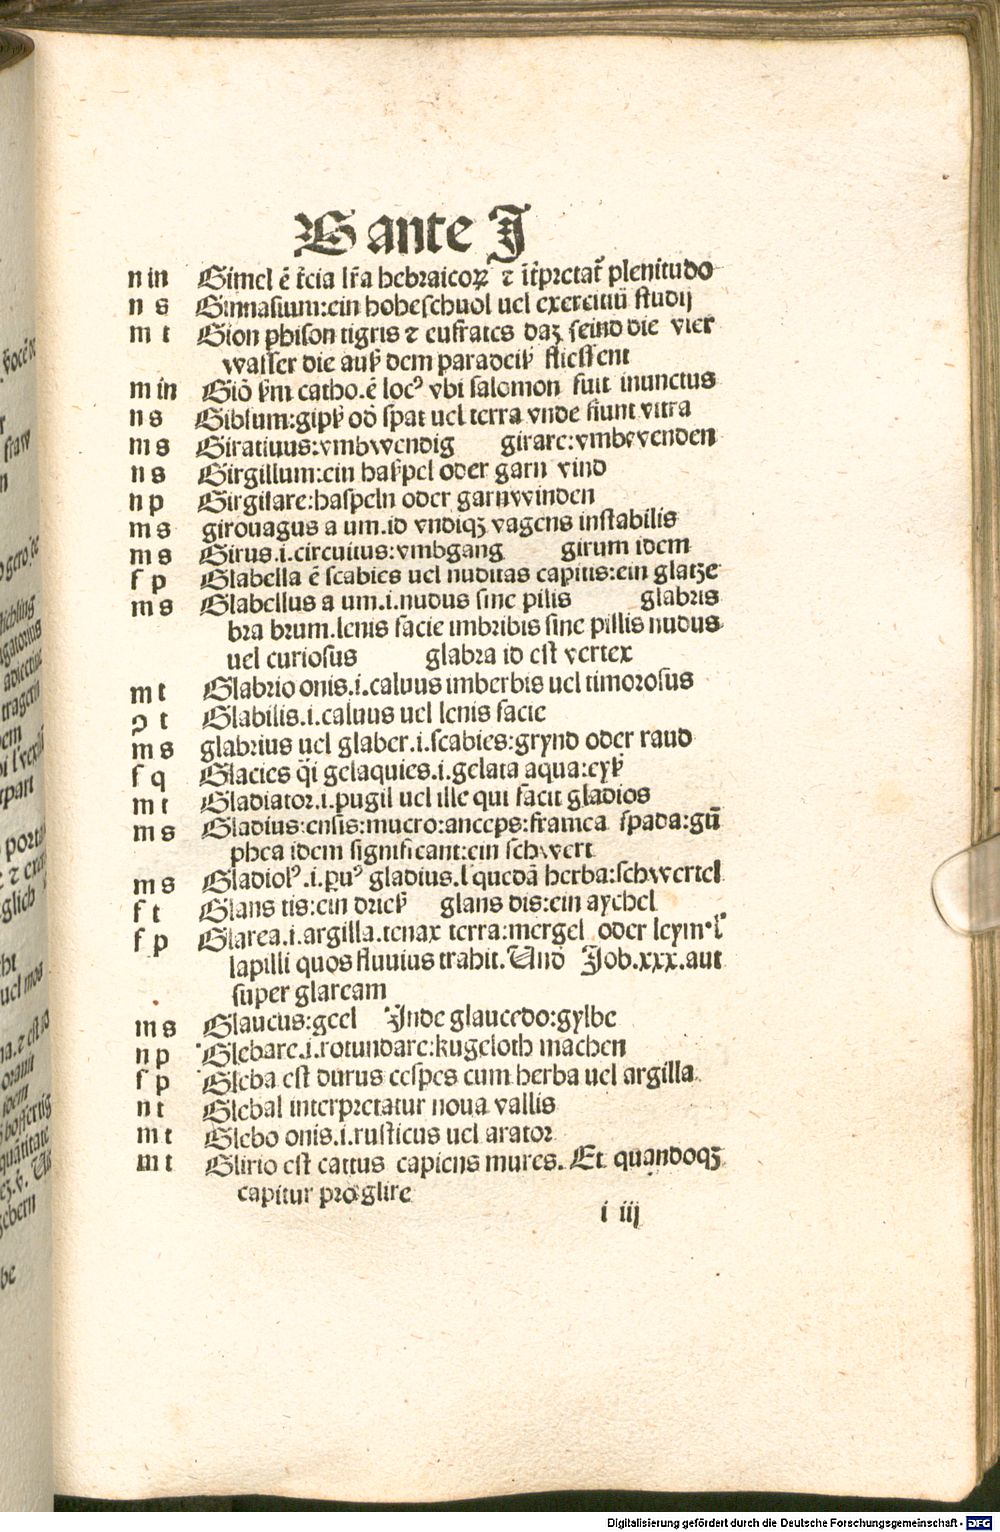 G ante J
n in Gimel ē t̄cia lr̄a hebraicoꝝ ⁊ īt̄pretat᷑ plenitudo
n s Ginnasium:ein hoheschuol uel exercitiū studij
m t Gion phison tigris ⁊ eufrates daz seind die vier
wasser die auß dem paradeiß fliessent
m in Giō ẜm catho.ē locꝰ vbi salomon fuit inunctus
n s Gibsum:gipß od̄ spat uel terra vnde fiunt vitra
m s Giratiuus:vmbwendig girare:vmbevenden
n s Girgillum:ein haßpel oder garn vind
n p Girgilare:haspeln oder garnwinden
m s girouagus a um.id vndiqꝫ vagens instabilis
m s Girus.i.circuitus:vmbgang girum idem
f p Glabella ē scabies uel nuditas capitis:ein glatze
m s Glabellus a um.i.nudus sine pilis glabris
bra brum.lenis facie imbribis sine pillis nudus
uel curiosus glabra id est vertex
m t Glabrio onis.i.caluus imberbis uel timorosus
ꝯ t Glabilis.i.caluus uel lenis facie
m s glabrius uel glaber.i.scabies:grynd oder raud
f q Glacies q̄i gelaquies.i.gelata aqua:eyß
m t Gladiator.i.pugil uel ille qui facit gladios
m s Gladius:ensis:mucro:anceps:framea spada:gū
phea idem significant:ein schwert
m s Gladiolꝰ.i.ꝑuꝰ gladius.l̕ quedā herba:schwertel
f t Glans tis:ein drieß glans dis:ein aychel
f p Glarea.i.argilla.tenax terra:mergel oder leym.l̕
lapilli quos fluuius trahit.Und Job.xxx.aut
super glaream
m s Glaucus:geel Jnde glaucedo:gylbe
n p Glebare.i.rotundare:kugeloth machen
f p Gleba est durus cespes cum herba uel argilla
n t Glebal interpretatur noua vallis
m t Glebo onis.i.rusticus uel arator
m t Glirio est cattus capiens mures. Et quandoqꝫ
capitur pro glire
i iij
Digitalisierung gefördert durch die Deutsche Forschungsgemeinschaft - DFG